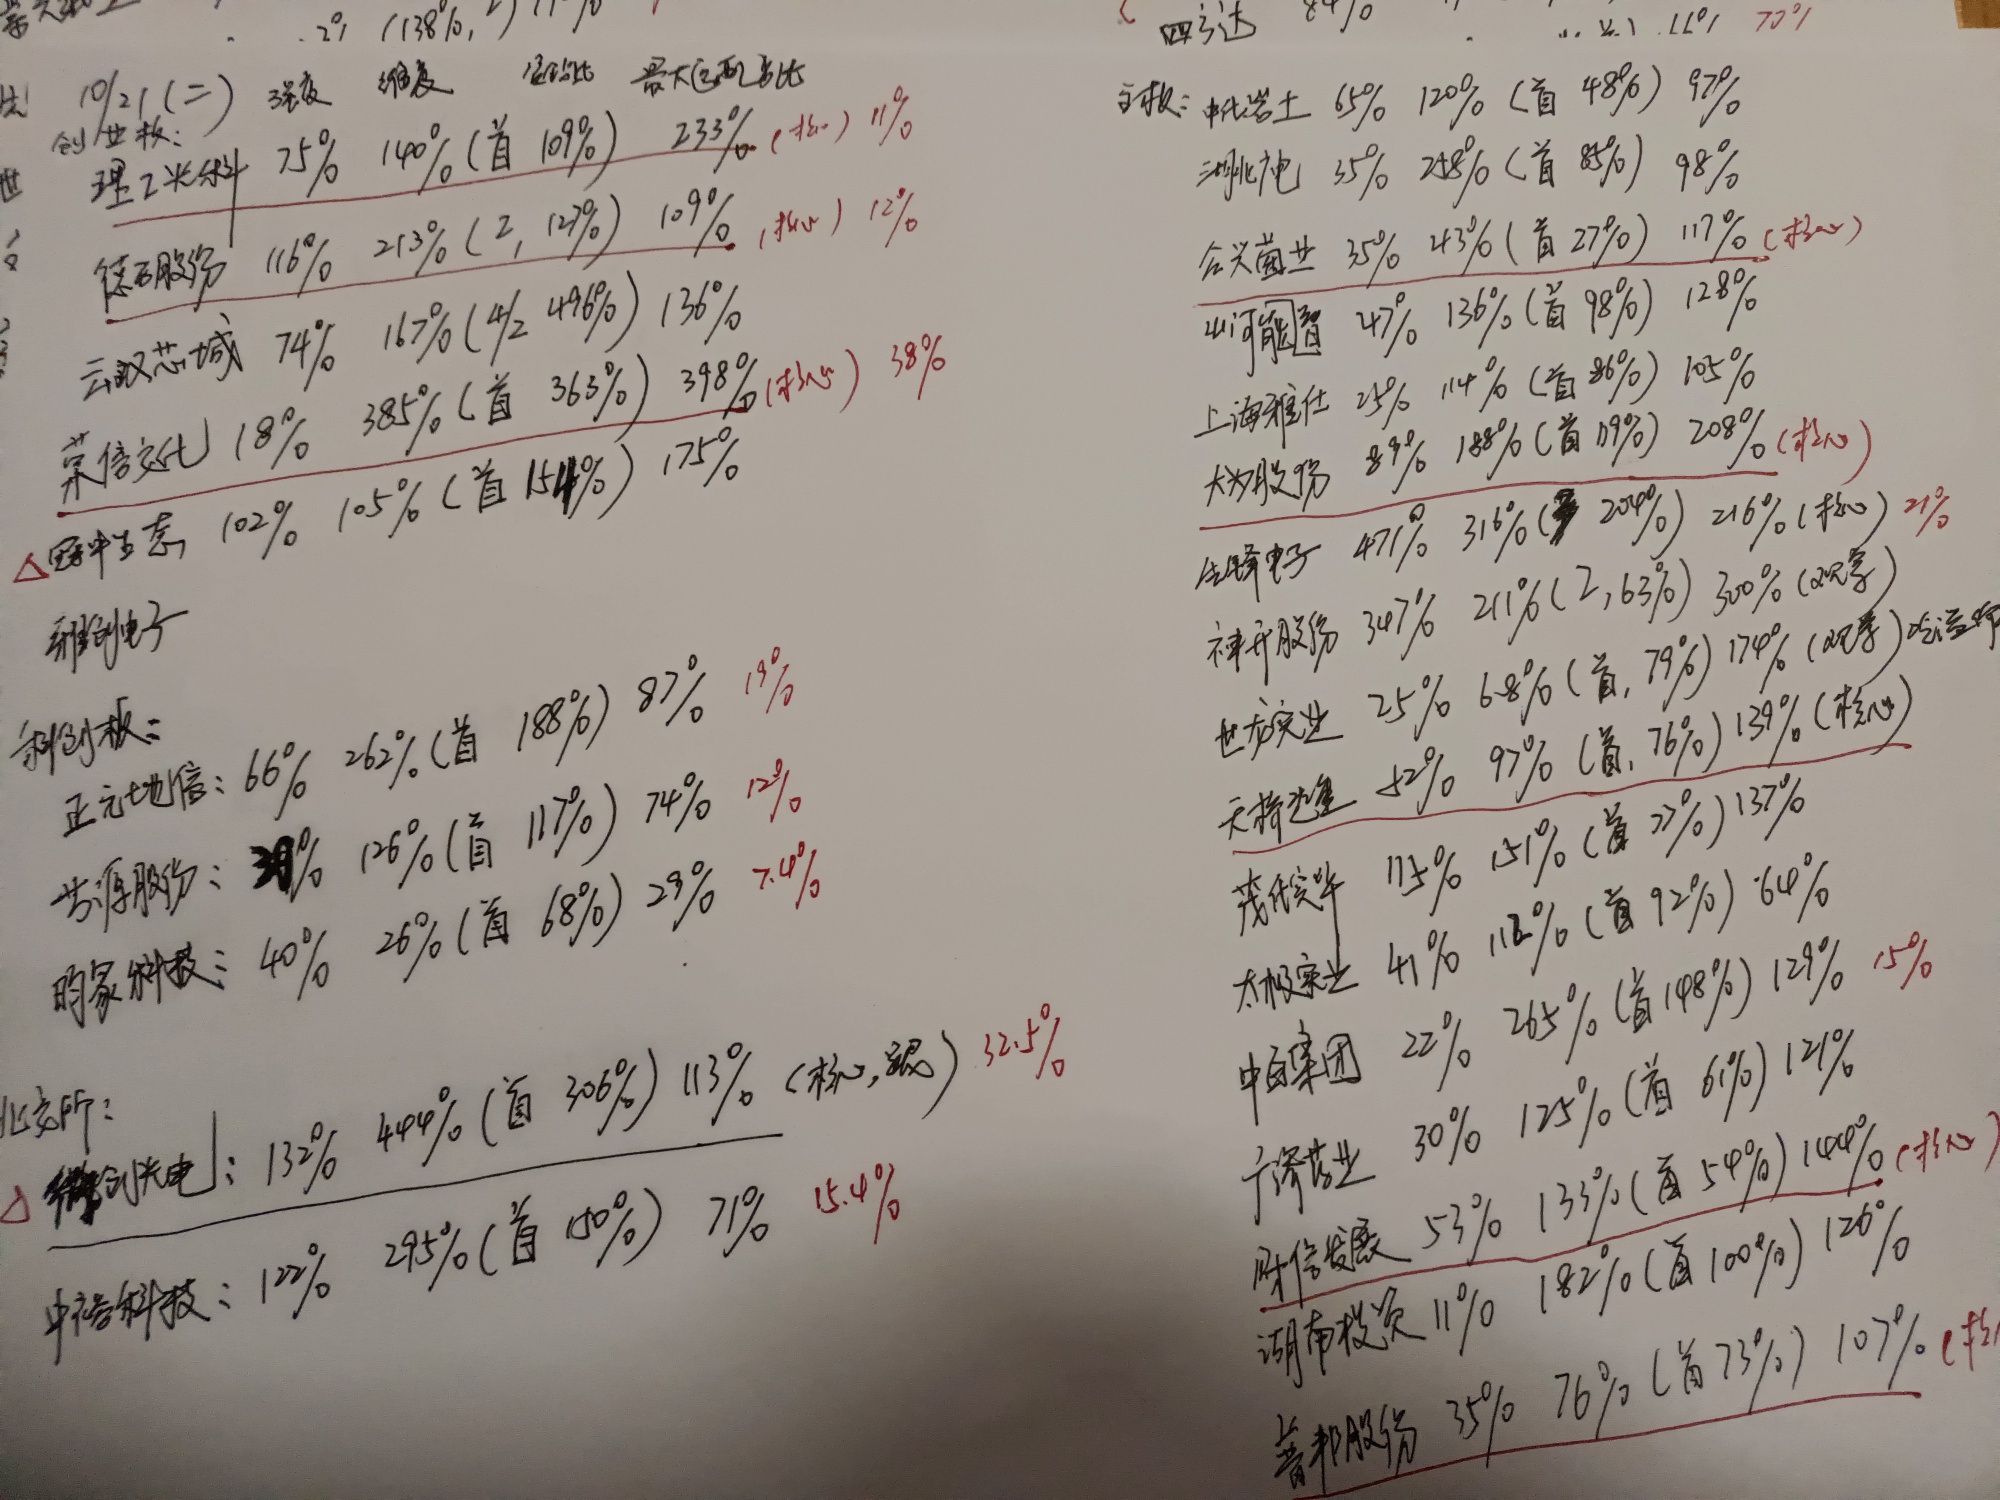 2% (138%,
10/21 (二) 强度 维度 首均比 最大匹配占比
创业板:
理工光科 75% 140% (首 109%) 233% (核心) 11%
德石股份 116% 213% (2, 127%) 109% (核心) 12%
云汉芯城 74% 167% (4/2 496%) 136%
荣信文化 18% 385% (首 363%) 398% (核心) 38%
△ 蒙草生态 102% 105% (首 154%) 175%
雅创电子
科创板:
正元地信: 66% 262% (首 188%) 87% 19%
芳源股份: 39% 126% (首 117%) 74% 12%
昀冢科技: 40% 26% (首 68%) 29% 7.4%
北交所:
△ 微创光电: 132% 444% (首 306%) 113% (核心, ) 32.5%
中裕科技: 122% 295% (首 150%) 71% 15.4%
四方达 84%
77%
主板: 中化岩土 65% 120% (首 48%) 97%
湖北广电 35% 258% (首 85%) 98%
众兴菌业 35% 43% (首 27%) 117% (核心)
山河智能 47% 136% (首 98%) 128%
上海雅仕 25% 114% (首 86%) 105%
大为股份 89% 188% (首 119%) 208% (核心)
先锋电子 471% 316% ( 204%) 216% (核心) 21%
神开股份 347% 211% (2, 63%) 300% (观察)
世龙实业 25% 68% (首, 79%) 174% (观察)
天桥起重 52% 97% (首, 76%) 139% (核心)
茂化实华 115% 151% (首 77%) 137%
太极实业 41% 112% (首 92%) 64%
中百集团 22% 265% (首 148%) 129% 15%
广济药业 30% 125% (首 61%) 121%
财信发展 53% 133% (首 54%) 144% (核心)
湖南投资 11% 182% (首 100%) 126%
普邦股份 35% 76% (首 73%) 107% (核